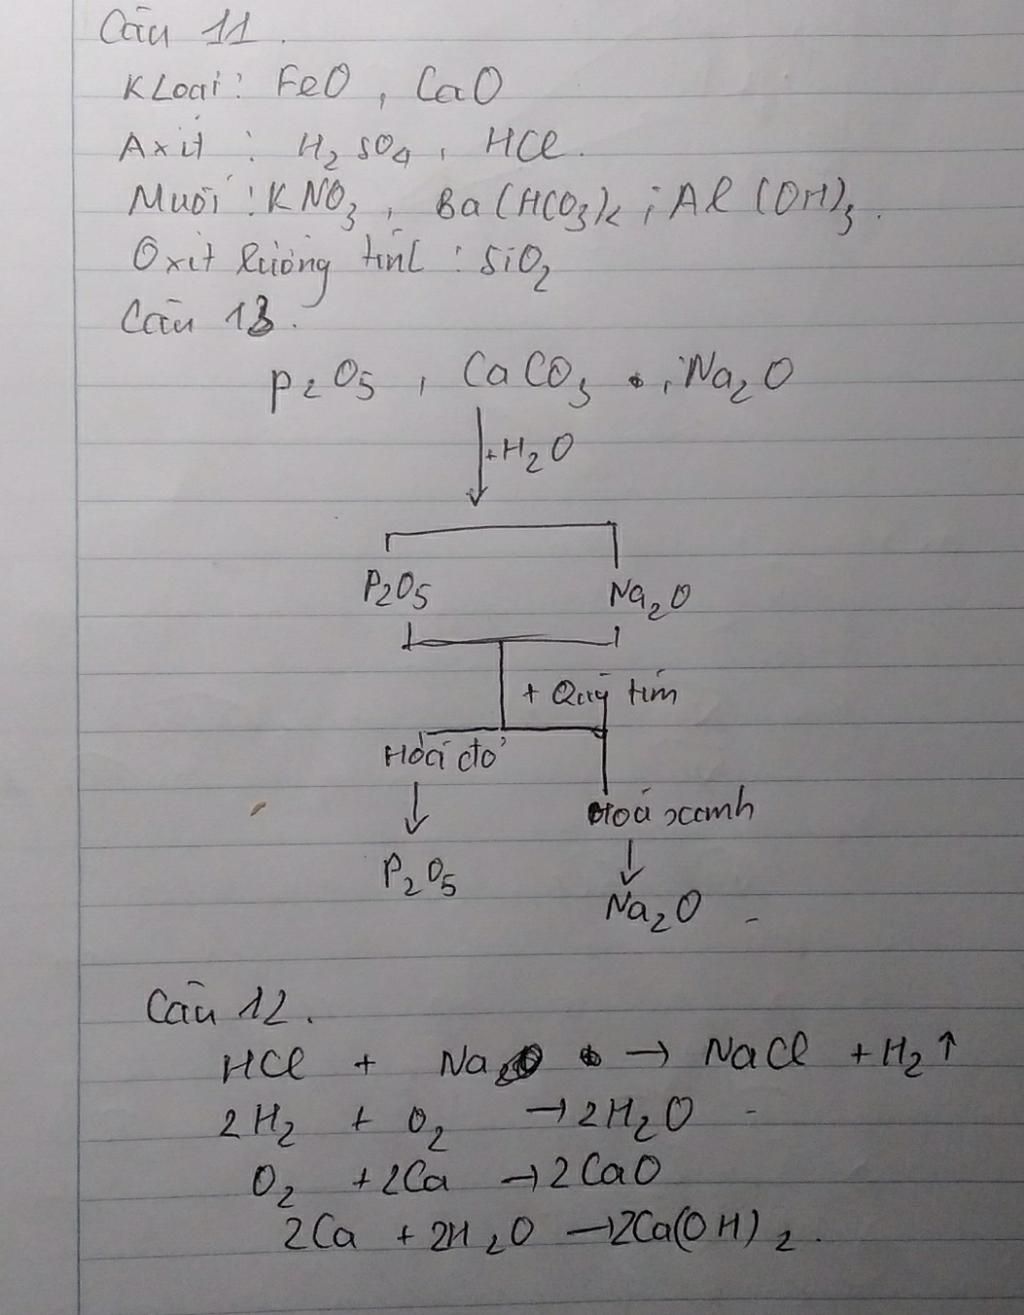 Câu 11.
KLoại: FeO, CaO
Axit : H₂SO₄, HCl.
Muối: KNO₃, Ba(HCO₃)₂; Al(OH)₃.
Oxit lưỡng tính: SiO₂
Câu 13.
P₂O₅, CaCO₃, Na₂O
+H₂O
P₂O₅ Na₂O
+ Quỳ tím
Hoá đỏ
Hoá xanh
P₂O₅
Na₂O
Câu 12.
HCl + Na → NaCl + H₂↑
2H₂ + O₂ → 2H₂O
O₂ + 2Ca → 2CaO
2Ca + 2H₂O → 2Ca(OH)₂.